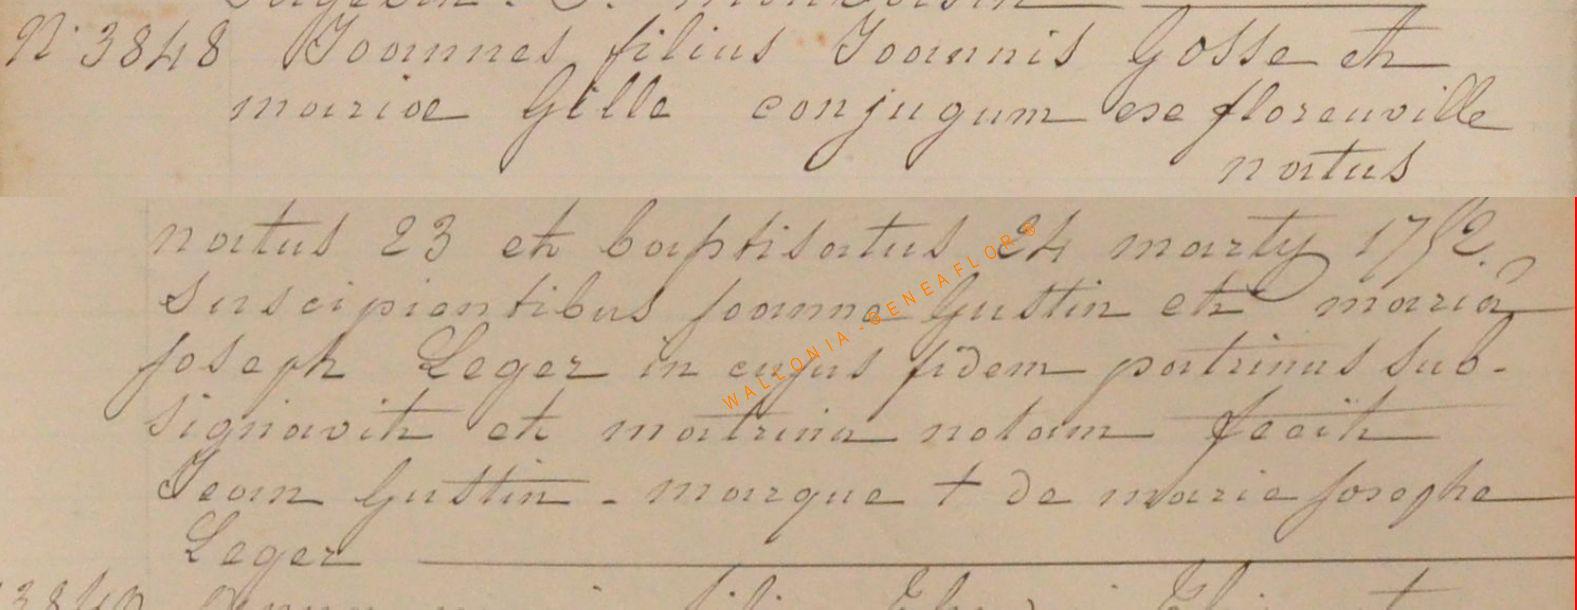 N° 3848 Joannes filius Joannis Gosse et
mariae Gille conjugum ex florenville
natus
natus 23 et baptisatus 24 marty 1752.
Suscipientibus joanne Gustin et maria
joseph Leger in cujus fidem patrinus sub-
signavit et matrina notam fecit
Jean Gustin - marque + de marie josephe
Leger
WALLONIA-GENEAFLOR®